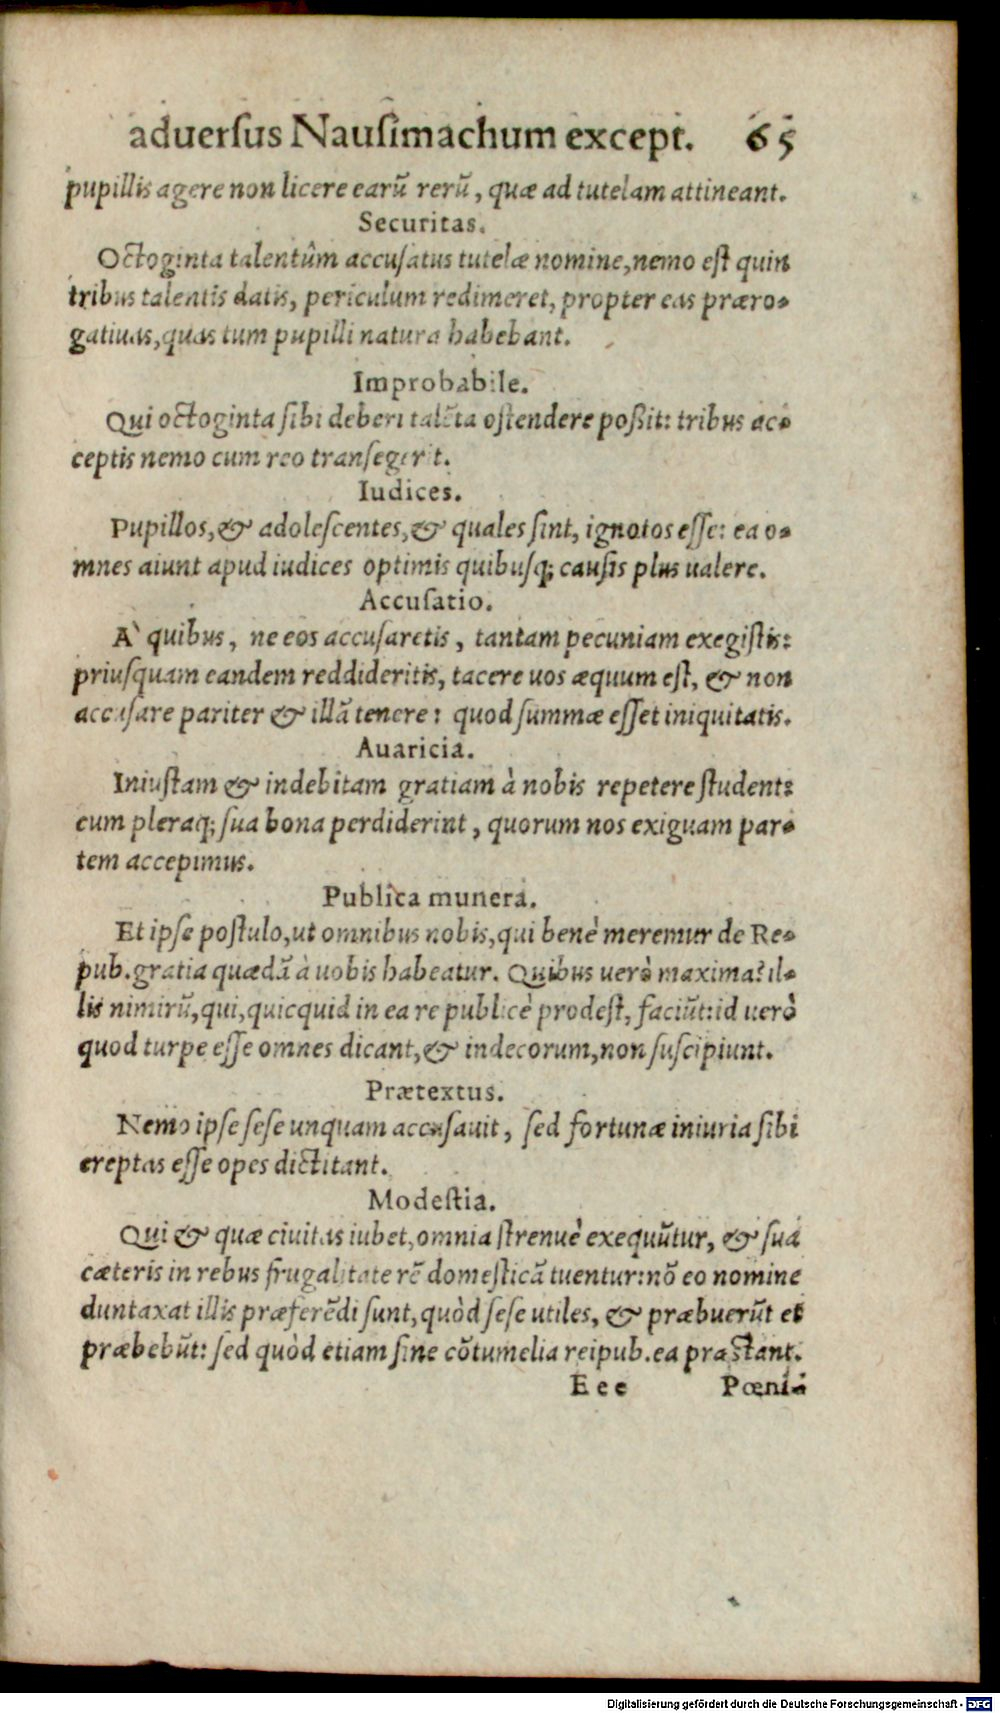 aduerſus Nauſimachum except. 65
pupillis agere non licere earū rerū, quæ ad tutelam attineant.
Securitas.
Octoginta talentûm accuſatus tutelæ nomine, nemo eſt quin
tribus talentis datis, periculum redimeret, propter eas præro-
gatiuas, quas tum pupilli natura habebant.
Improbabile.
Qui octoginta ſibi deberi talēta oſtendere poßit: tribus ac-
ceptis nemo cum reo tranſegerit.
Iudices.
Pupillos, & adoleſcentes, & quales ſint, ignotos eſſe: ea o-
mnes aiunt apud iudices optimis quibuſq; cauſis plus ualere.
Accuſatio.
A` quibus, ne eos accuſaretis, tantam pecuniam exegiſtis:
priuſquam eandem reddideritis, tacere uos æquum eſt, & non
accuſare pariter & illā tenere: quod ſummæ eſſet iniquitatis.
Auaricia.
Iniuſtam & indebitam gratiam à nobis repetere ſtudent:
cum pleraq; ſua bona perdiderint, quorum nos exiguam par-
tem accepimus.
Publica munera.
Et ipſe poſtulo, ut omnibus nobis, qui benè meremur de Re-
pub. gratia quædā à uobis habeatur. Quibus uerò maxima? il-
lis nimirū, qui, quicquid in ea re publicè prodeſt, faciūt: id uerò
quod turpe eſſe omnes dicant, & indecorum, non ſuſcipiunt.
Prætextus.
Nemo ipſe ſeſe unquam accuſauit, ſed fortunæ iniuria ſibi
ereptas eſſe opes dictitant.
Modeſtia.
Qui & quæ ciuitas iubet, omnia ſtrenuè exequūtur, & ſua
cæteris in rebus frugalitate rē domeſticā tuentur: nō eo nomine
duntaxat illis præferēdi ſunt, quòd ſeſe utiles, & præbuerūt et
præbebūt: ſed quòd etiam ſine cōtumelia reipub. ea præſtant.
Eee Pœni-
Digitalisierung gefördert durch die Deutsche Forschungsgemeinschaft - DFG